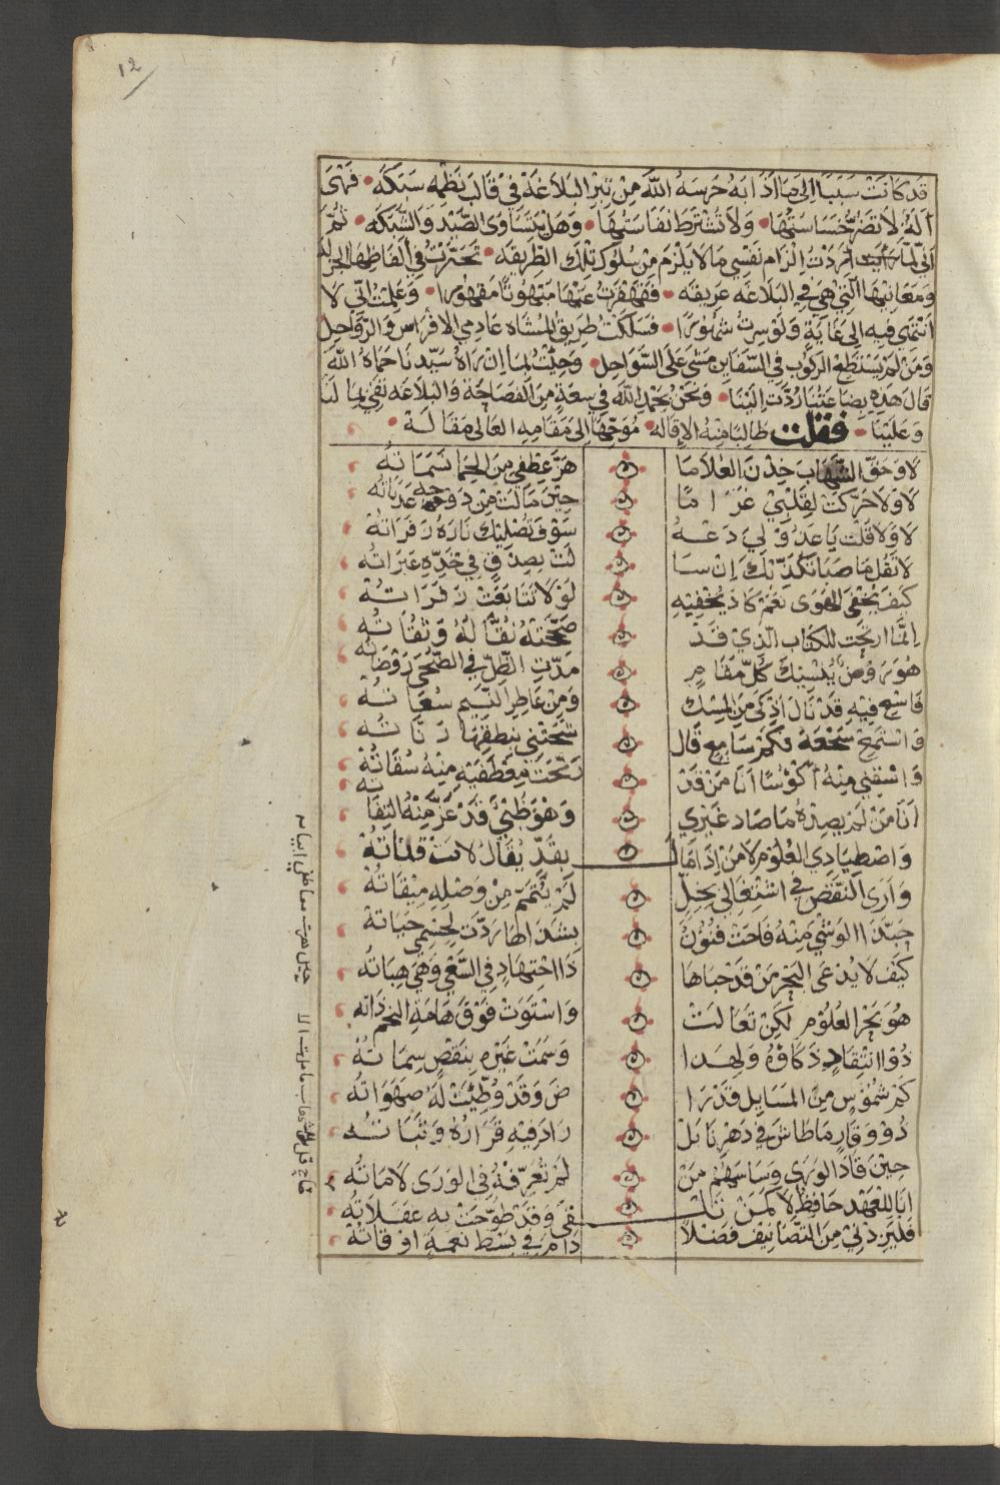 12
قد كانت سببا الى صا اذابه حرسه الله من تبر البلاغة في قالب نظمه سبكه • فهى
آلة لا تضر خساستها • ولا تشترط نفاستها • وهل يتساوى الصيد والشبكه • ثم
انى لما اردت الزام نفسي ما لا يلزم من سلوك تلك الطريقه • تحيرت في الفاظها
ومعانيها التي هي في البلاغه عريقه • فقهقرت عنها مبهوتا مقهورا • وعلمت انى لا
انتهى فيه الى غاية ولو سرت شهورا • فسلكت طريق المشاه عادمي الافراس والرواحل
ومن لم يستطع الركوب في السفاين مشى على السواحل • وحيث لما ان رآه سيدنا حماه الله
قال هذه بضاعتنا ردت الينا • ونحن بحمد الله في سعة من الفصاحة والبلاغه تفي بما لنا
وعلينا • فقلت طالبا منه الاقاله • موجها الى مقامه العالى مقالة •
لا وحق الشهاب خدن العلا ما هز عطفي من الحما نسماته
لا ولا حركت لقلبي غراما حين مالت من دوحه عذباته
لا ولا قلت يا عذولي دعه سوف تصليك ناره زفراته
لا تقل ما صبا تكذبك ان سا لت بصدق في خده عبراته
كيف يخفى الهوى نعم كاد يخفيه لولا تتابعت زفراته
انما ارتجت للكتاب الذي قد صححته نقاله وثقاته
هو روض ينسيك كل مقام مدت الظل في الضحى روضاته
فاسع فيه قد نال اذكى من المسك ومن عاطر النسيم سعاته
واستمع سجعه فكم سامع قال شجتني بنطقها ناته
واسقني منه اكؤسا انا ممن قد رنحت معطفيه منه سقاته
انا من لم يصده ما صاد غيري وهو ظبي قد عز منه التفاته
واصطيادي العلوم لا من اذا ما ل بقد يقال لانت قناته
وارى النقض في اشتغالي بخل لم يتمم من وصله ميقاته
حبذا الوشي منه فاحت فنون بشذاها ردت لجسمي حياته
كيف لا يدعى البحر من قد حباها ذا اجتهاد في السعي وهي هباته
هو بحر العلوم لكن تعالت واستوت فوق هامة النجم ذاته
ذو انتقاد ذكاؤه ولهذا وسمت غيره بنقص سماته
كم شموس من المسايل قد را ض وقد وطئت له صهواته
ذو وقار ما طاش في دهرنا بل زاد فيه قراره وثباته
حين قاد الورى وساسهم من لم تعرفه في الورى لاماته
انا للعهد حافظ لا كمن تلـ ـقى وقد طوحت به عفلاته
فليزدني من التصانيف فضلا دام في بسط نعمة اوقاته